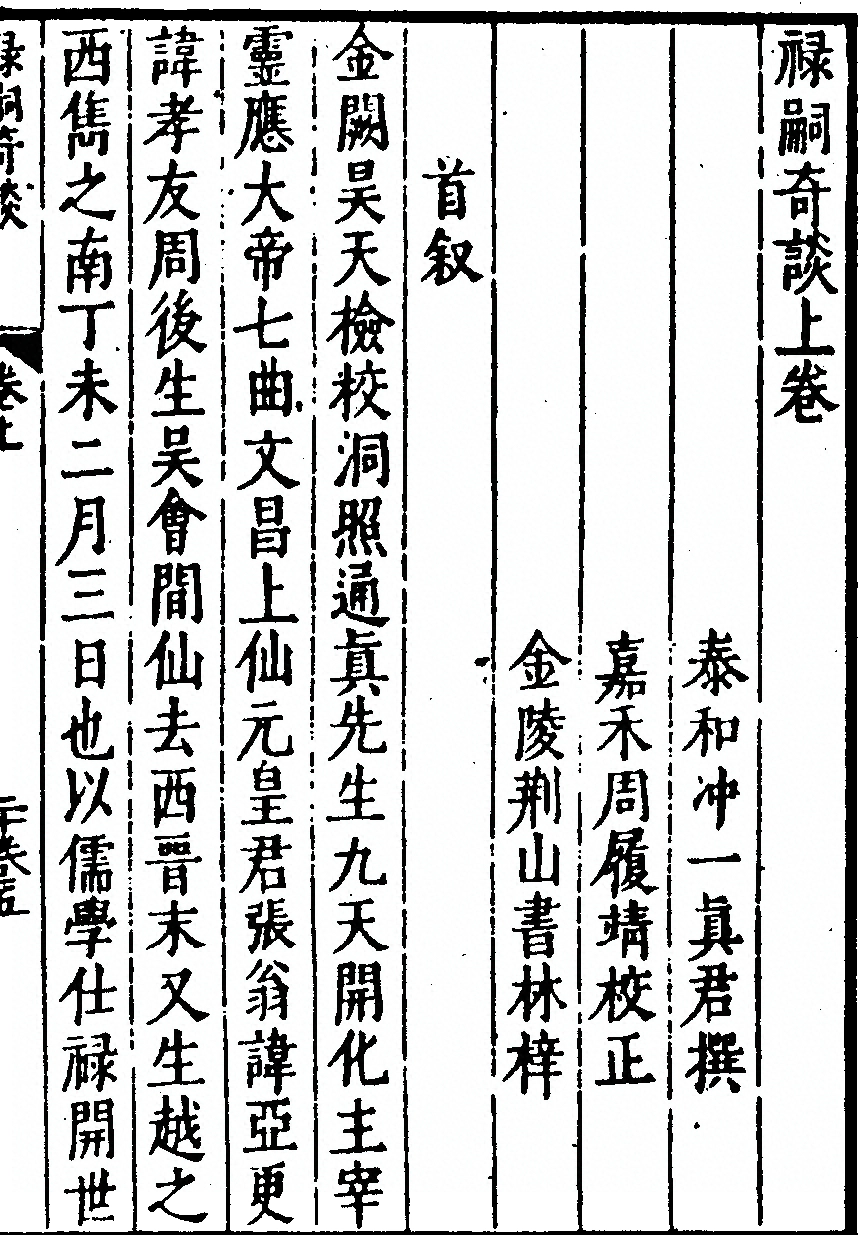 祿嗣奇談上卷
泰和冲一眞君撰
嘉禾周履靖校正
金陵荆山書林梓
首叙
金闕昊天檢校洞照通眞先生九天開化主宰
靈應大帝七曲文昌上仙元皇君張翁諱亞更
諱孝友周後生吴會間仙去西晋末又生越之
西雋之南丁未二月三日也以儒學仕祿開世
祿嗣奇談
卷上